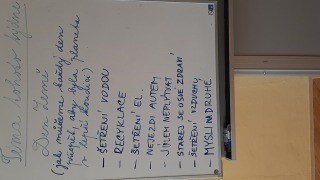 Téma tohoto týdne
Den Země
(jak můžeme každý den
přispět, aby byla planeta
v lepší kondici)
- ŠETŘENÍ VODOU
- RECYKLACE
- ŠETŘENÍ EL.
- NEJEZDI AUTEM
- JÍDLEM NEPLÝTVAT
- STAREJ SE O SVÉ ZDRAVÍ
- ŠETŘENÍ VZDUCHU
- MYSLI NA DRUHÉ